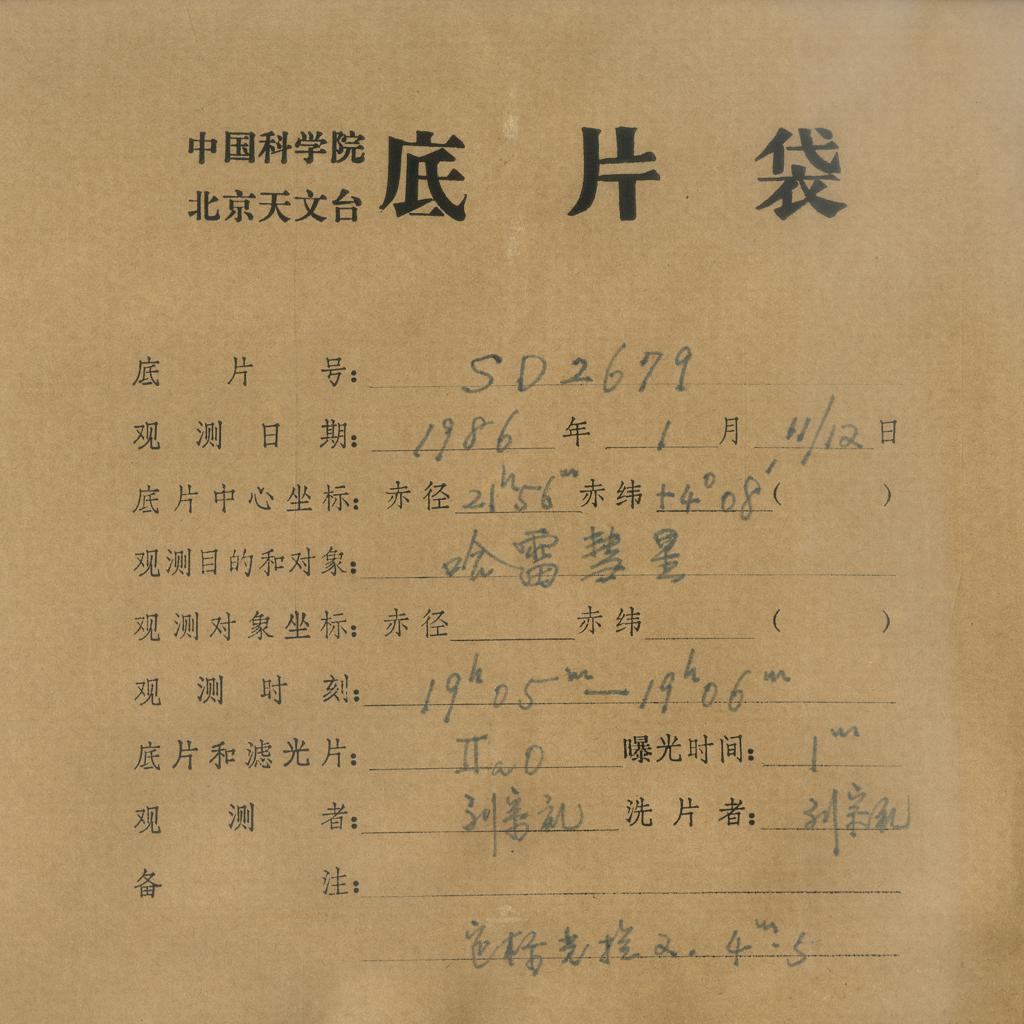 中国科学院
北京天文台
底片袋
底片号: SD2679
观测日期: 1986年1月11/12日
底片中心坐标: 赤径21ʰ56ᵐ赤纬+4°08′( )
观测目的和对象: 哈雷彗星
观测对象坐标: 赤径 赤纬 ( )
观测时刻: 19ʰ05ᵐ—19ʰ06ᵐ
底片和滤光片: IIaO 曝光时间: 1ᵐ
观测者: 刘宗礼 洗片者: 刘宗礼
备注:
定标光 4ᵐ.5